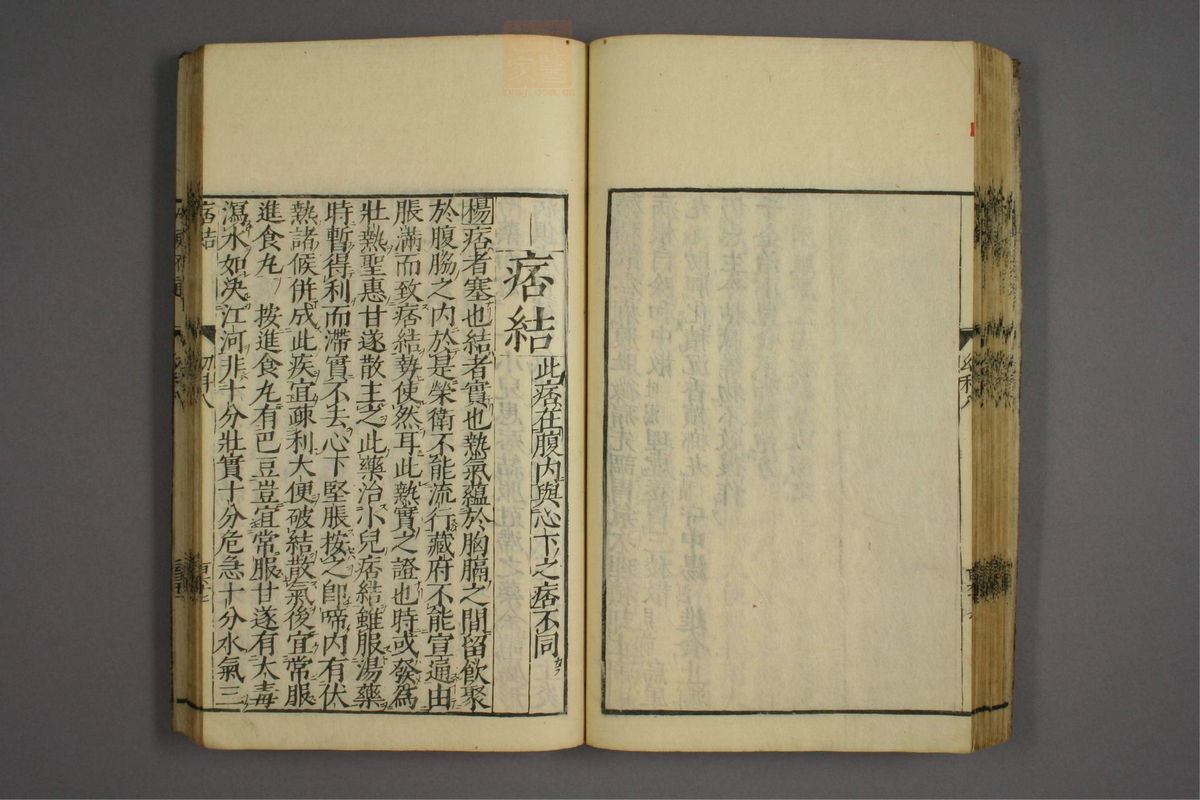 痞結 此痞在腹内與心下之痞不同
楊痞者塞也結者實也熱氣蘊於胸膈之間留飲聚
於腹脇之内於是榮衛不能流行藏府不能宣通由
脹滿而致痞結勢使然耳此熱實之證也時或發爲
壯熱聖惠甘遂散主之此藥治小兒痞結雖服湯藥
時暫得利而滯實不去心下堅脹按之即啼内有伏
熱諸候併成此疾宜疎利大便破結散氣後宜常服
進食丸 按進食丸有巴豆豈宜常服甘遂有大毒
瀉水如決江河非十分壯實十分危急十分水氣三
痞結
幼科八